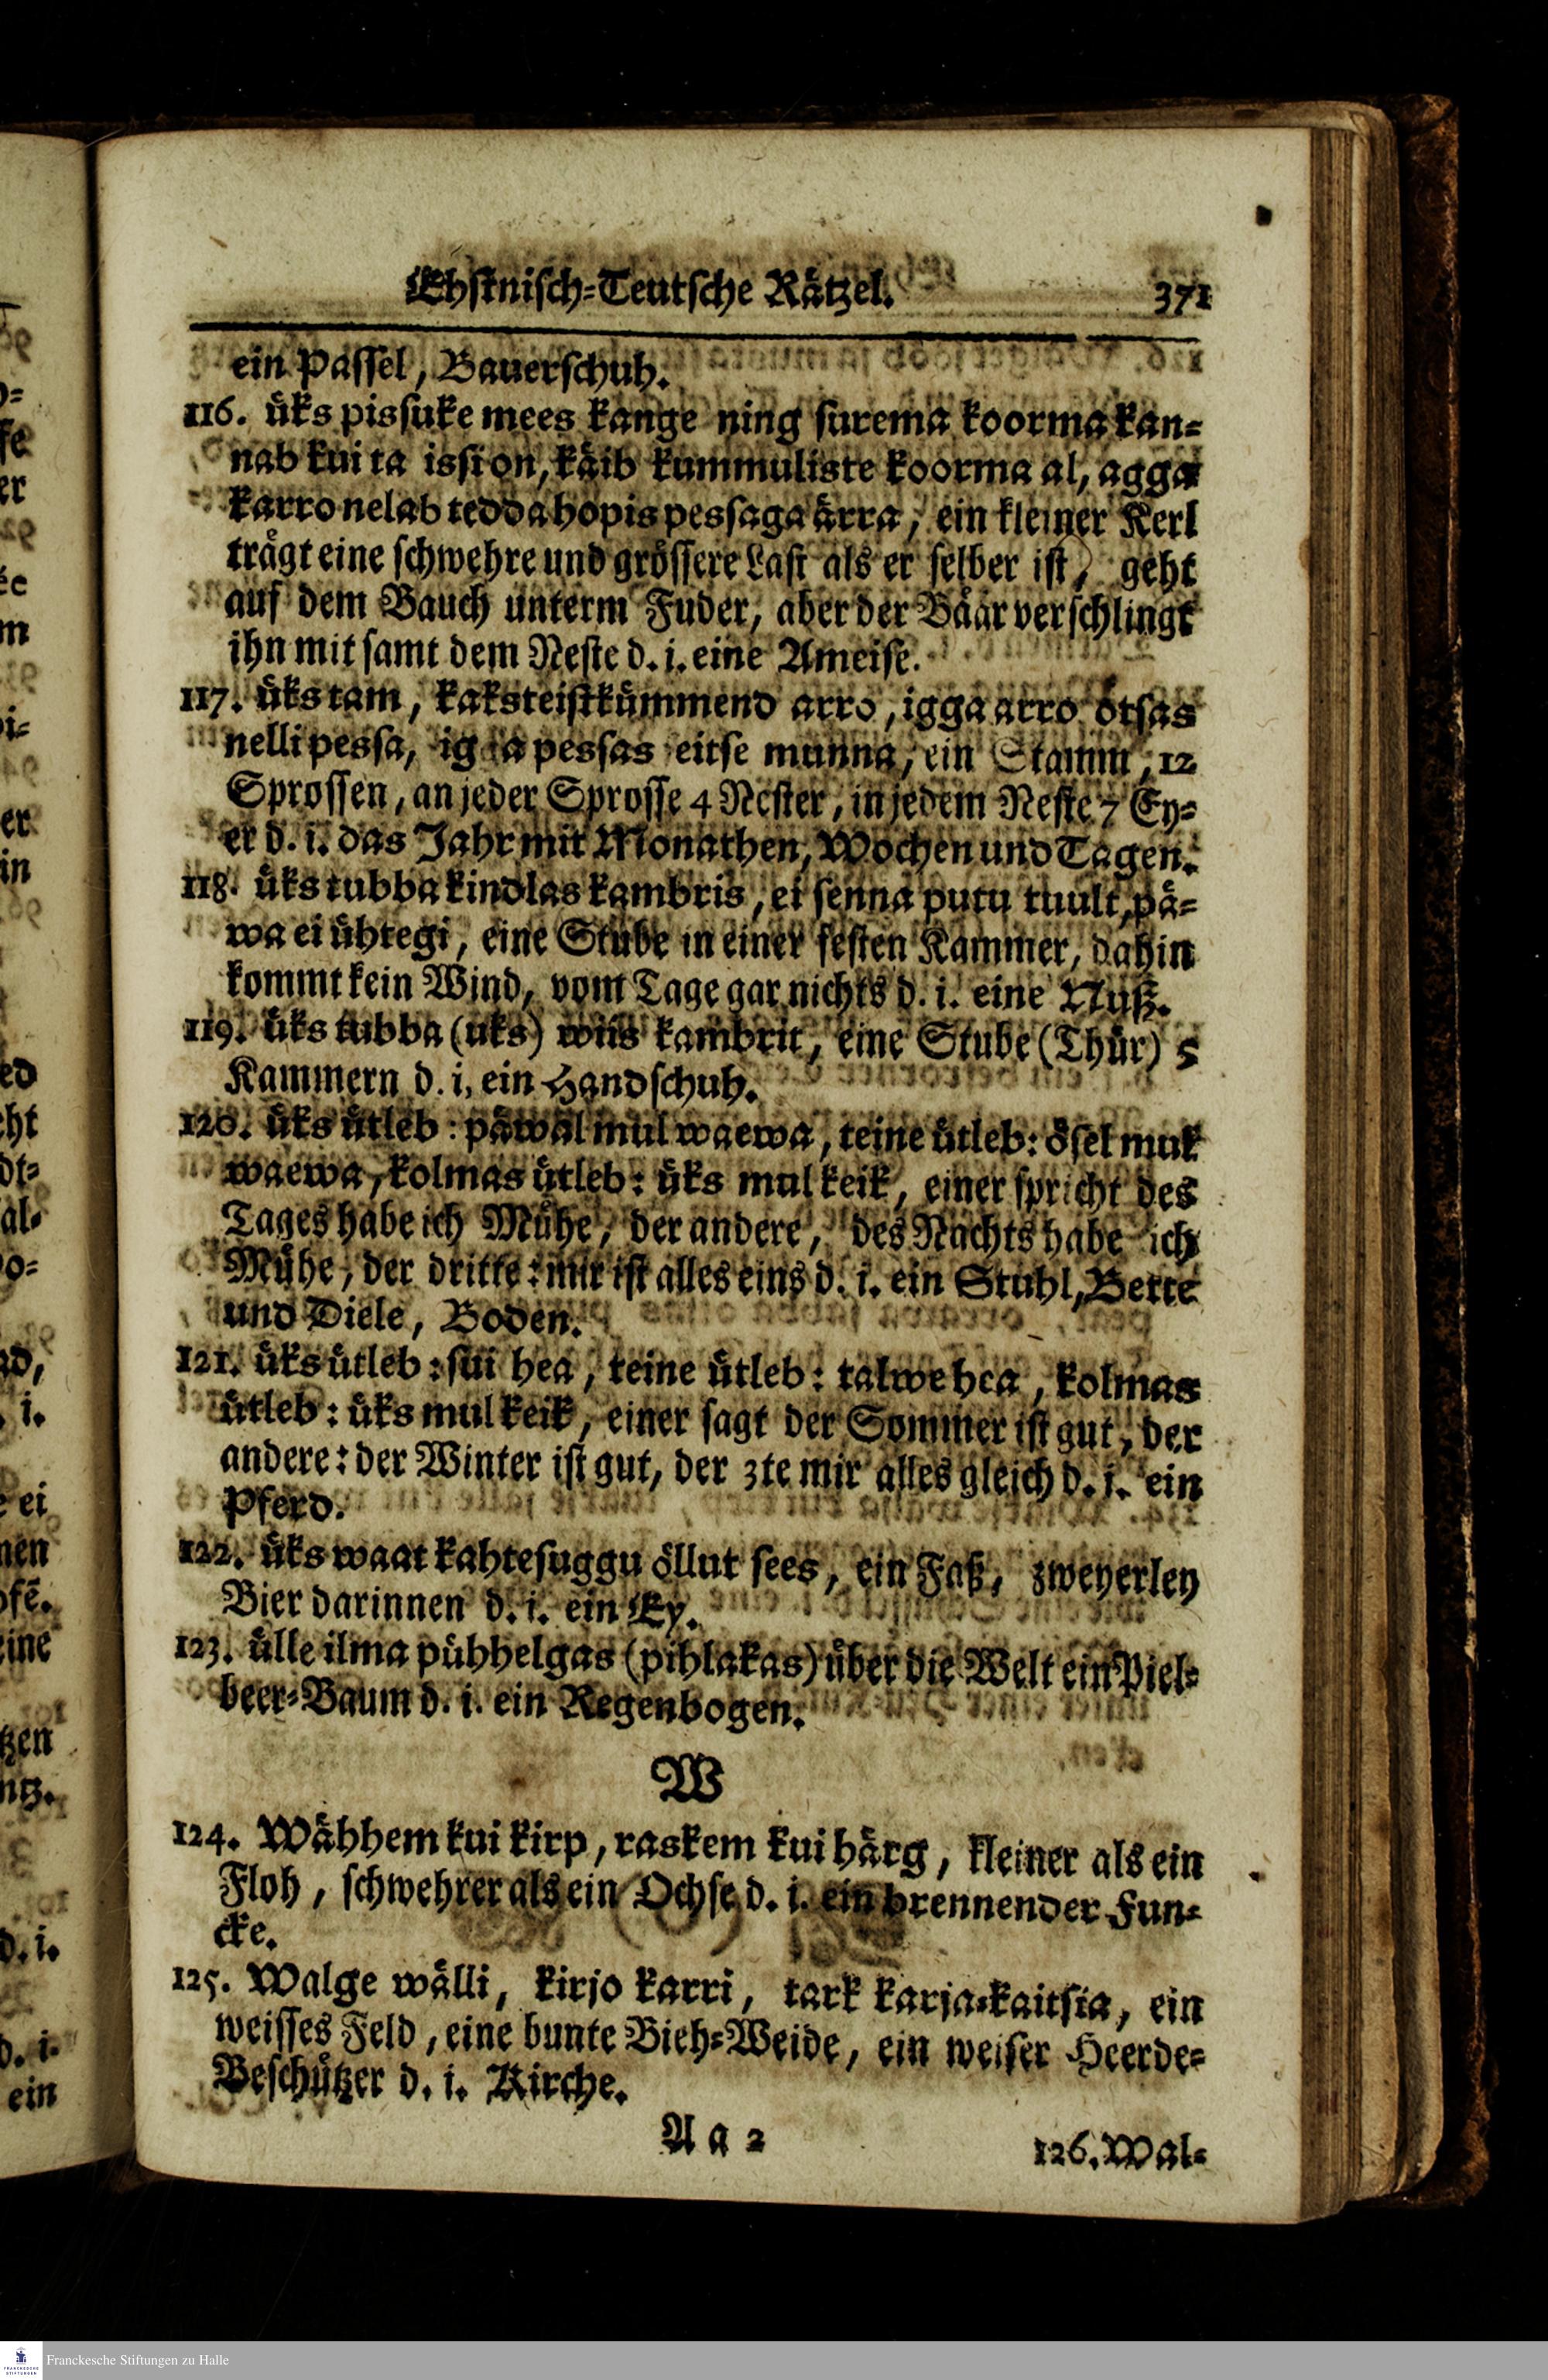 Ehstnisch-Teutsche Rätzel. 371
ein Passel, Bauerschuh.
116. üks pissuke mees kange ning surema koorma kan-
nab kui ta issi on, käib kummuliste koorma al, agga
karro nelab tedda hopis pessaga ärra, ein kleiner Kerl
trägt eine schwehre und grössere Last als er selber ist, geht
auf dem Bauch unterm Fuder, aber der Bäär verschlingt
ihn mit samt dem Neste d. i. eine Ameise.
117. üks tam, kaksteistkümmend arro, igga arro otsas
nelli pessa, igga pessas eitse munna, ein Stamm, 12
Sprossen, an jeder Sprosse 4 Nester, in jedem Neste 7 Ey-
er d. i. das Jahr mit Monathen, Wochen und Tagen.
118. üks tubba kindlas kambris, ei senna putu tuult, pä-
wa ei ühtegi, eine Stube in einer festen Kammer, dahin
kommt kein Wind, vom Tage gar nichts d. i. eine Nuß.
119. üks tubba (uks) wiis kambrit, eine Stube (Thür) 5
Kammern d. i. ein Handschuh.
120. üks ütleb: päwäl mul waewa, teine ütleb: ösel mul
waewa, kolmas ütleb: üks mul keik, einer spricht des
Tages habe ich Mühe, der andere, des Nachts habe ich
Mühe, der dritte: mir ist alles eins d. i. ein Stuhl, Bette
und Diele, Boden.
121. üks ütleb: sui hea, teine ütleb: talwe hea, kolmas
ütleb: üks mul keik, einer sagt der Sommer ist gut, der
andere: der Winter ist gut, der 3te mir alles gleich d. i. ein
Pferd.
122. üks waat kahtesuggu öllut sees, ein Faß, zweyerley
Bier darinnen d. i. ein Ey.
123. ülle ilma pühhelgas (pihlakas) über die Welt ein Piel-
beer-Baum d. i. ein Regenbogen.
W
124. Wähhem kui kirp, raskem kui härg, kleiner als ein
Floh, schwehrer als ein Ochse d. i. ein brennender Fun-
cke.
125. Walge wälli, kirjo karri, tark karja-kaitsia, ein
weisses Feld, eine bunte Vieh-Weide, ein weiser Heerde-
Beschützer d. i. Kirche.
A a 2 126. Wal-
Franckesche Stiftungen zu Halle